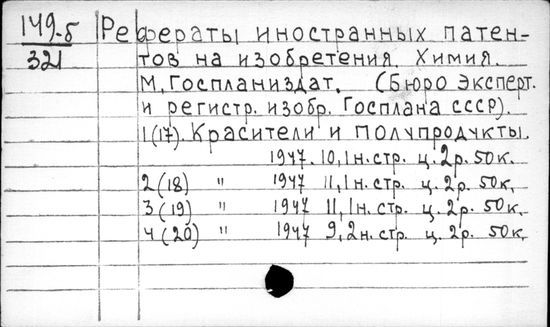 149-б Рефераты иностранных патен-
321 тов на изобретения. Химия.
М, Госпланиздат. (Бюро эксперт.
и регистр. изобр. Госплана СССР).
1(17). Красители и полупродукты.
1947. 10, 1н. стр. ц. 2р. 50к.
2(18) " 1947 11, 1н. стр. ц. 2р. 50к.
3(19) " 1947 11, 1н. стр. ц. 2р. 50к.
4(20) " 1947 9, 2н. стр. ц. 2р. 50к.